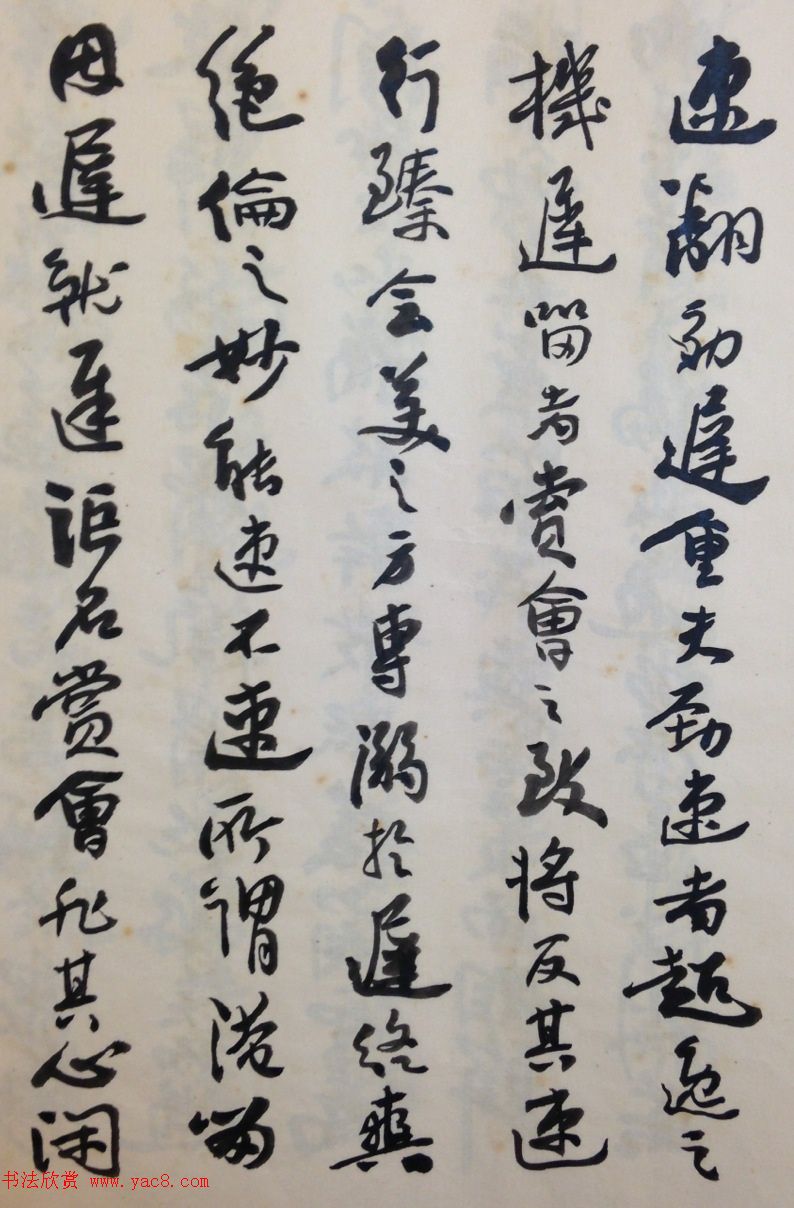 速翻効遲重夫勁速者超逸之
機遲留者賞會之致將反其速
行臻会美之方專溺於遲終爽
絕倫之妙能速不速所謂淹留
因遲就遲詎名賞會非其心閑
书法欣赏 www.yac8.com